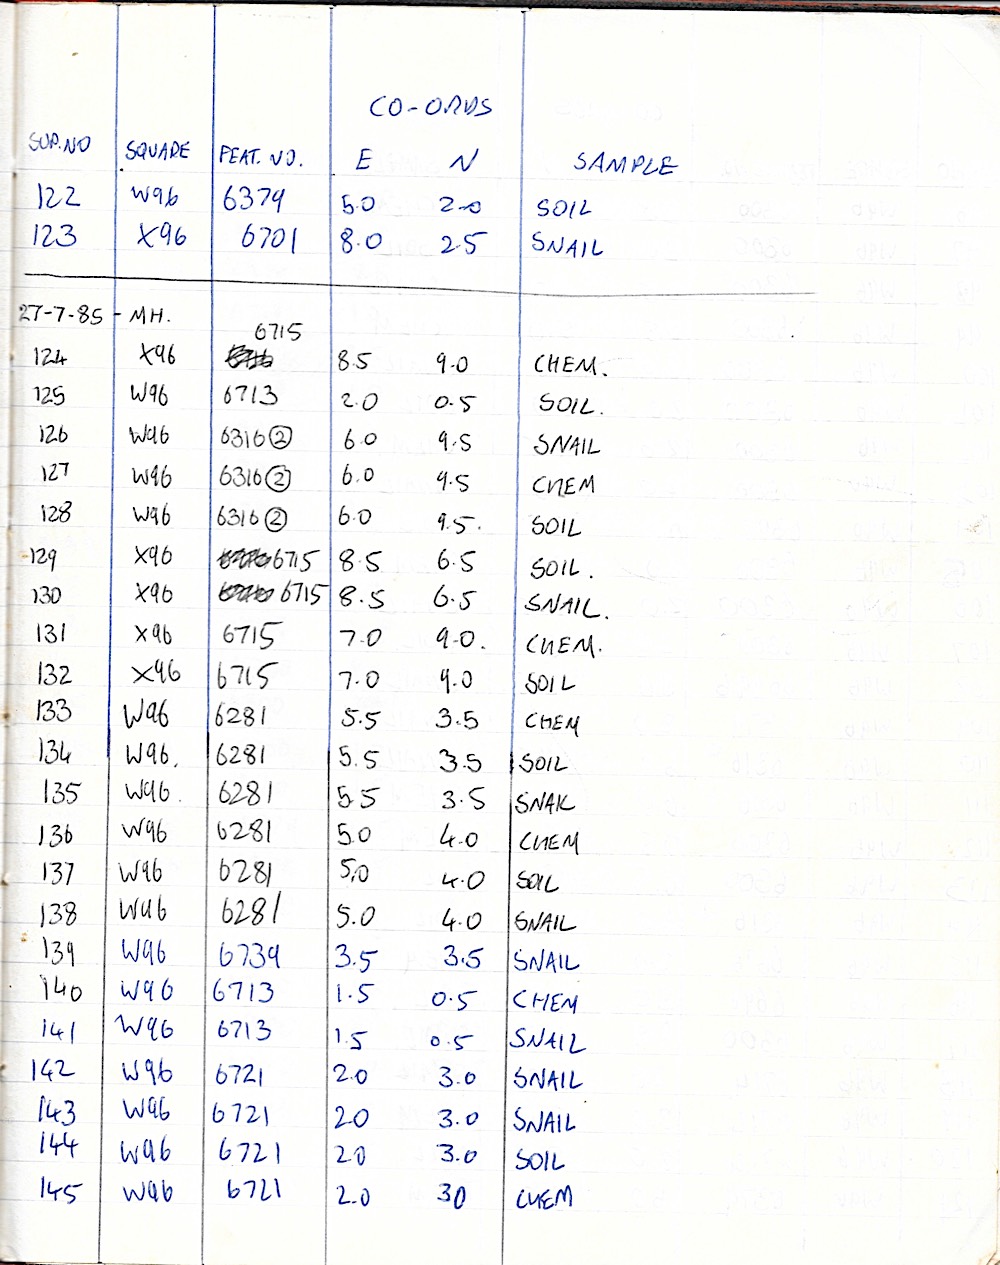 CO-ORDS
SUP.NO SQUARE FEAT. NO. E N SAMPLE
122 W96 6379 5.0 2.0 SOIL
123 X96 6701 8.0 2.5 SNAIL
27-7-85 - MH.
6715
124 X96 8.5 9.0 CHEM.
125 W96 6713 2.0 0.5 SOIL.
126 W96 6316 ② 6.0 9.5 SNAIL
127 W96 6316 ② 6.0 9.5 CHEM
128 W96 6316 ② 6.0 9.5. SOIL
129 X96 6715 8.5 6.5 SOIL.
130 X96 6715 8.5 6.5 SNAIL.
131 X96 6715 7.0 9.0. CHEM.
132 X96 6715 7.0 9.0 SOIL
133 W96 6281 5.5 3.5 CHEM
134 W96. 6281 5.5 3.5 SOIL
135 W96. 6281 5.5 3.5 SNAIL
136 W96 6281 5.0 4.0 CHEM
137 W96 6281 5.0 4.0 SOIL
138 W96 6281 5.0 4.0 SNAIL
139 W96 6739 3.5 3.5 SNAIL
140 W96 6713 1.5 0.5 CHEM
141 W96 6713 1.5 0.5 SNAIL
142 W96 6721 2.0 3.0 SNAIL
143 W96 6721 20 3.0 SNAIL
144 W96 6721 20 3.0 SOIL
145 W96 6721 2.0 30 CHEM